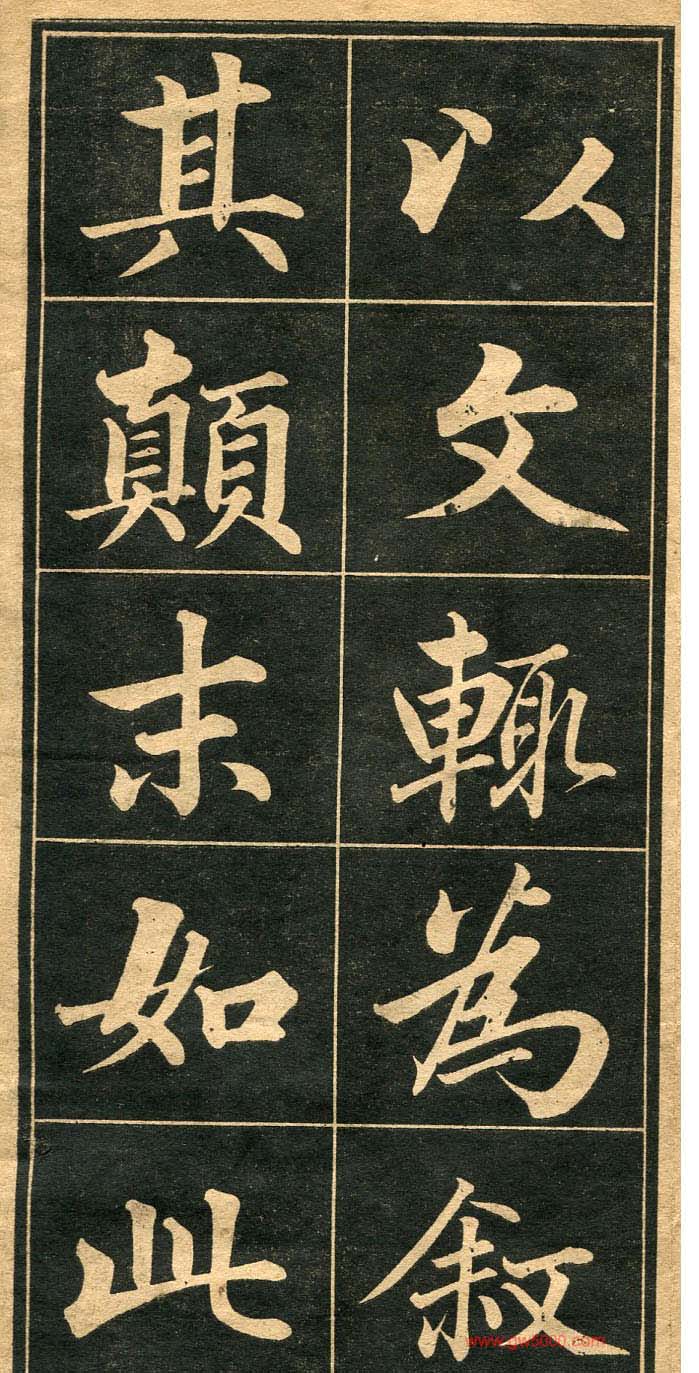 以文輙為叙
其顛末如此
www.gw5000.com